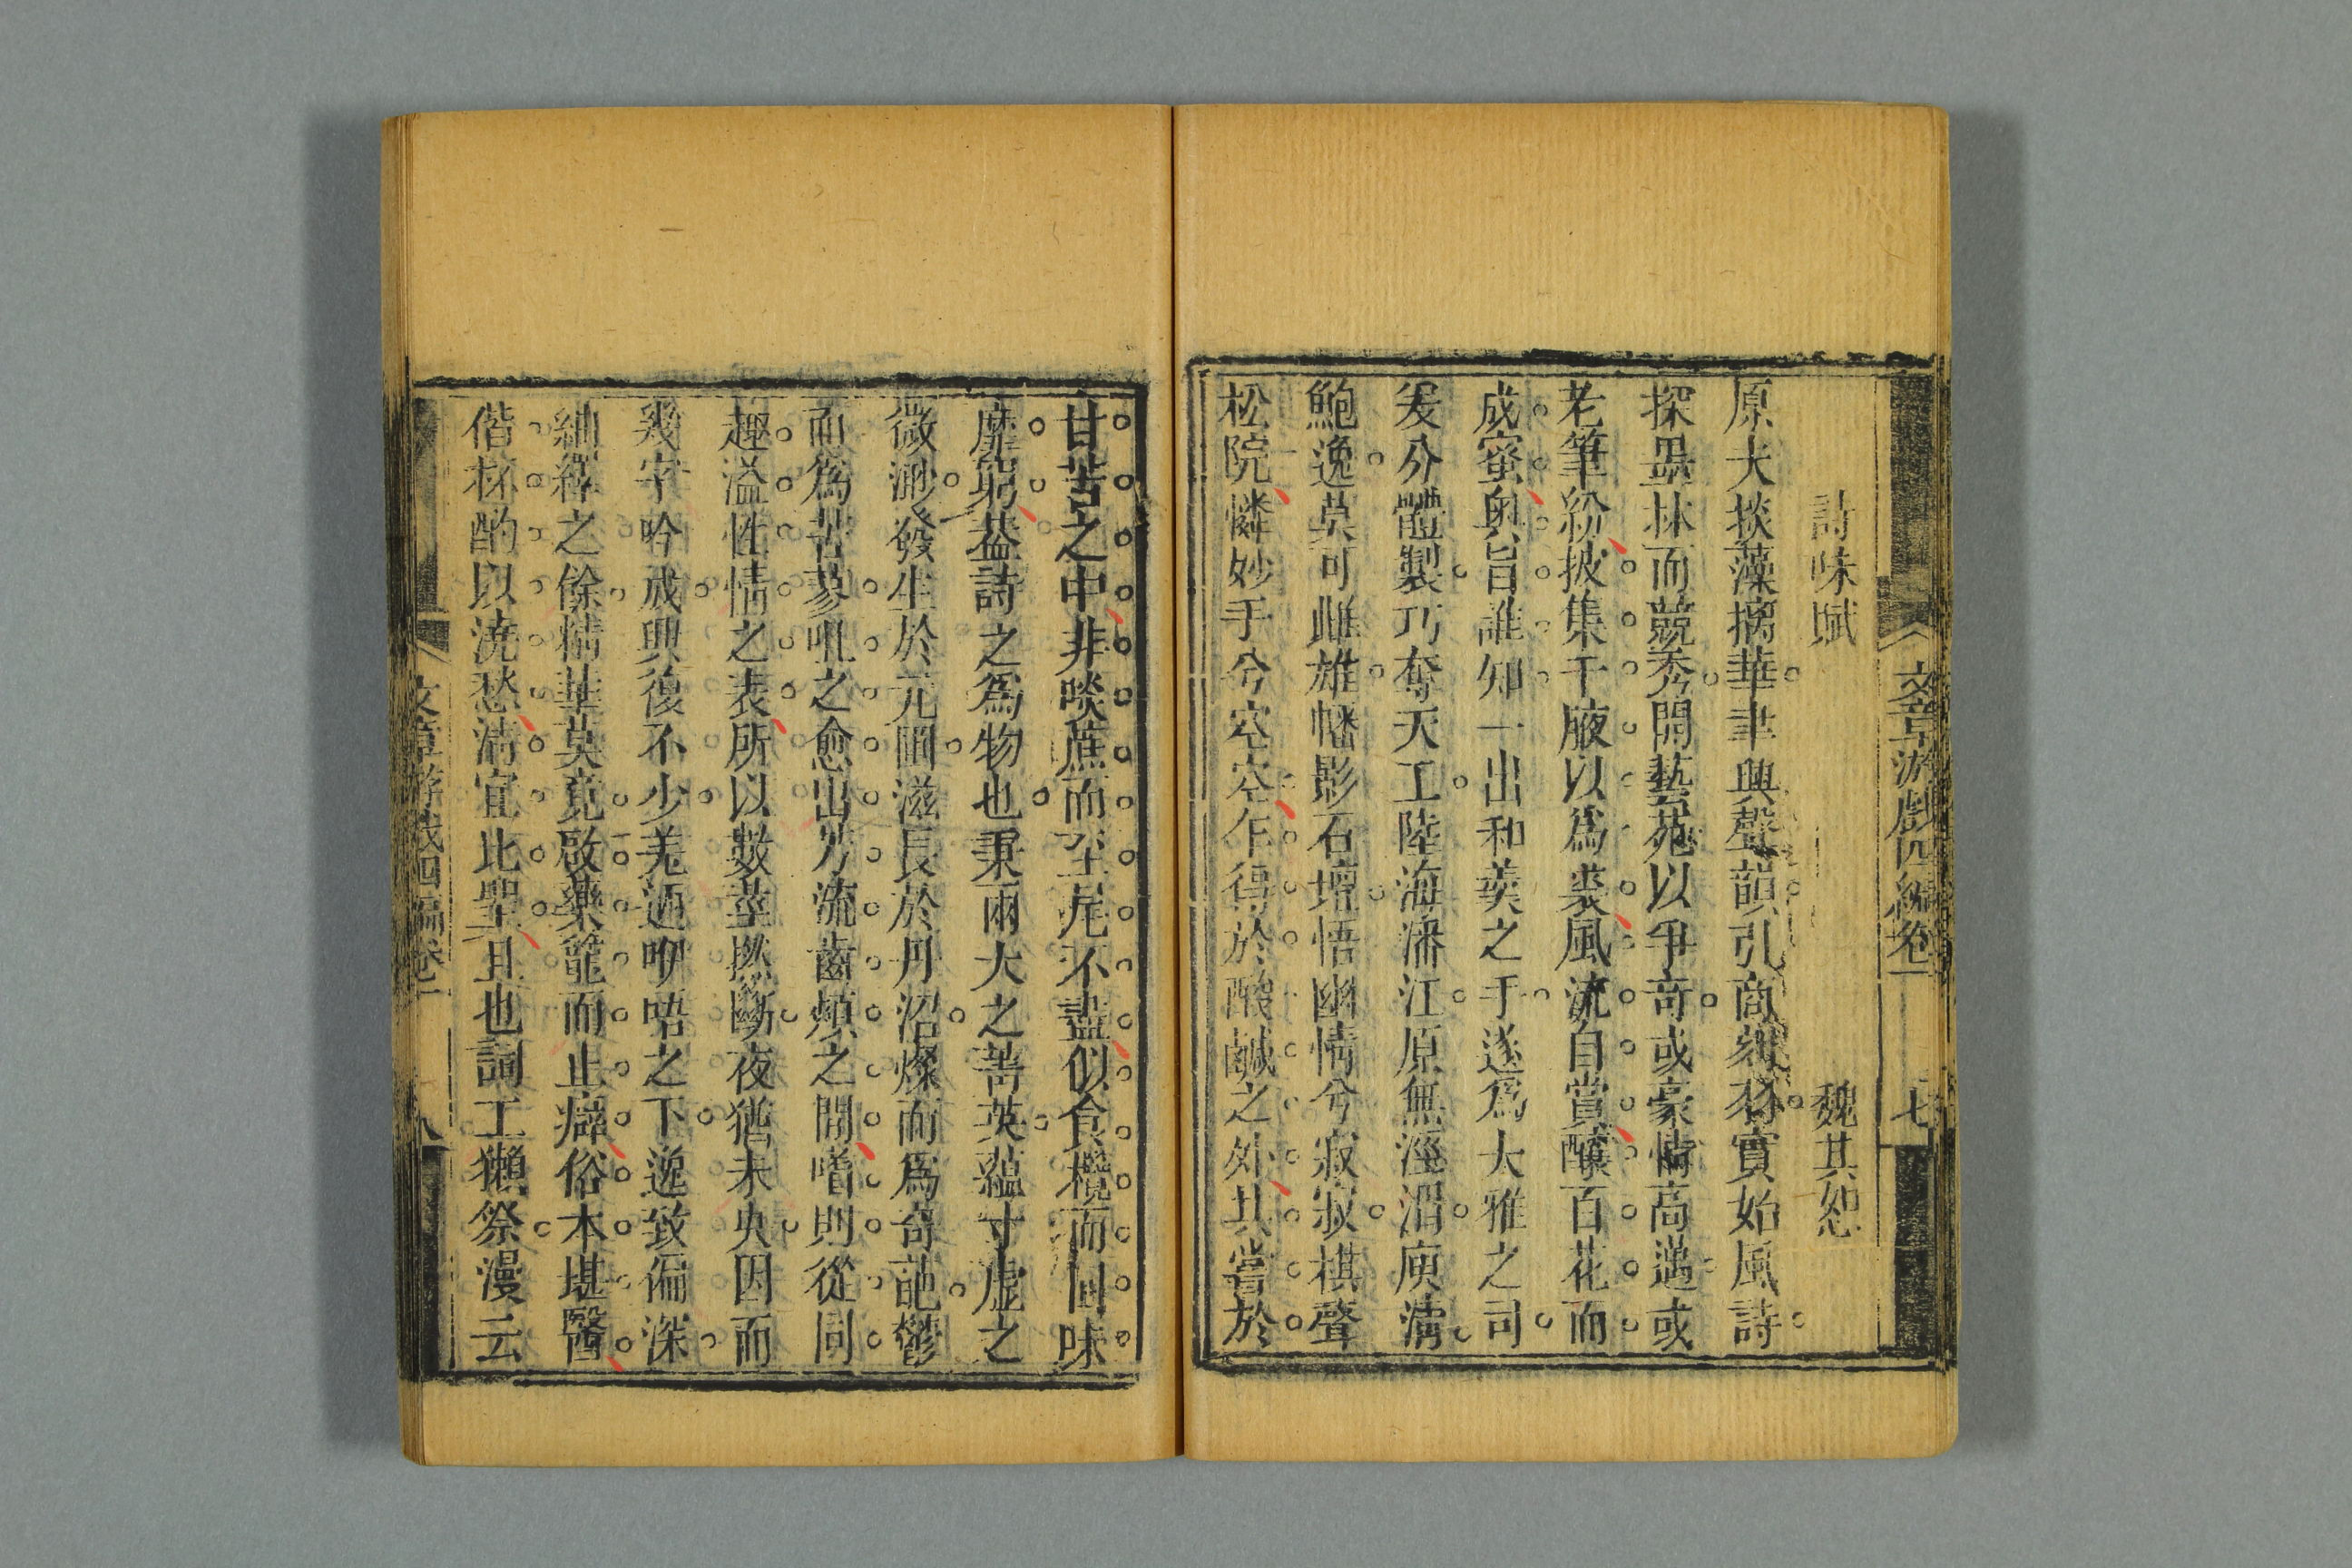 文章游戲四編卷一 七
詩味賦 魏其恕
原夫掞藻摛華聿興聲韻引商刻羽實始風詩
探畾林而競秀開藝苑以爭奇或豪情高邁或
老筆紛披集千腋以爲裘風流自賞釀百花而
成蜜奧旨誰知一出和羹之手遂爲大雅之司
爰分體製巧奪天工陸海潘江原無涇渭庾清
鮑逸莫可雌雄幡影石壇悟幽情兮寂寂棋聲
松院憐妙手兮空空乍得於酸鹹之外其嘗於
甘苦之中非啖蔗而至尾不盡似食欖而回味
靡窮蓋詩之爲物也秉兩大之菁英蘊寸虛之
微渺發生於元圃滋長於丹沼燦而爲奇葩鬱
而爲苦蓼咀之愈出芳流齒頰之間嗜則從同
趣溢性情之表所以數莖撚斷夜猶未央因而
幾字吟成興復不少羌迺咿唔之下逸致偏深
紬繹之餘精華莫竟啟藥籠而止癖俗本堪醫
偕杯酌以澆愁清宜比聖且也詞工獺祭漫云
文章游戲四編卷一 八